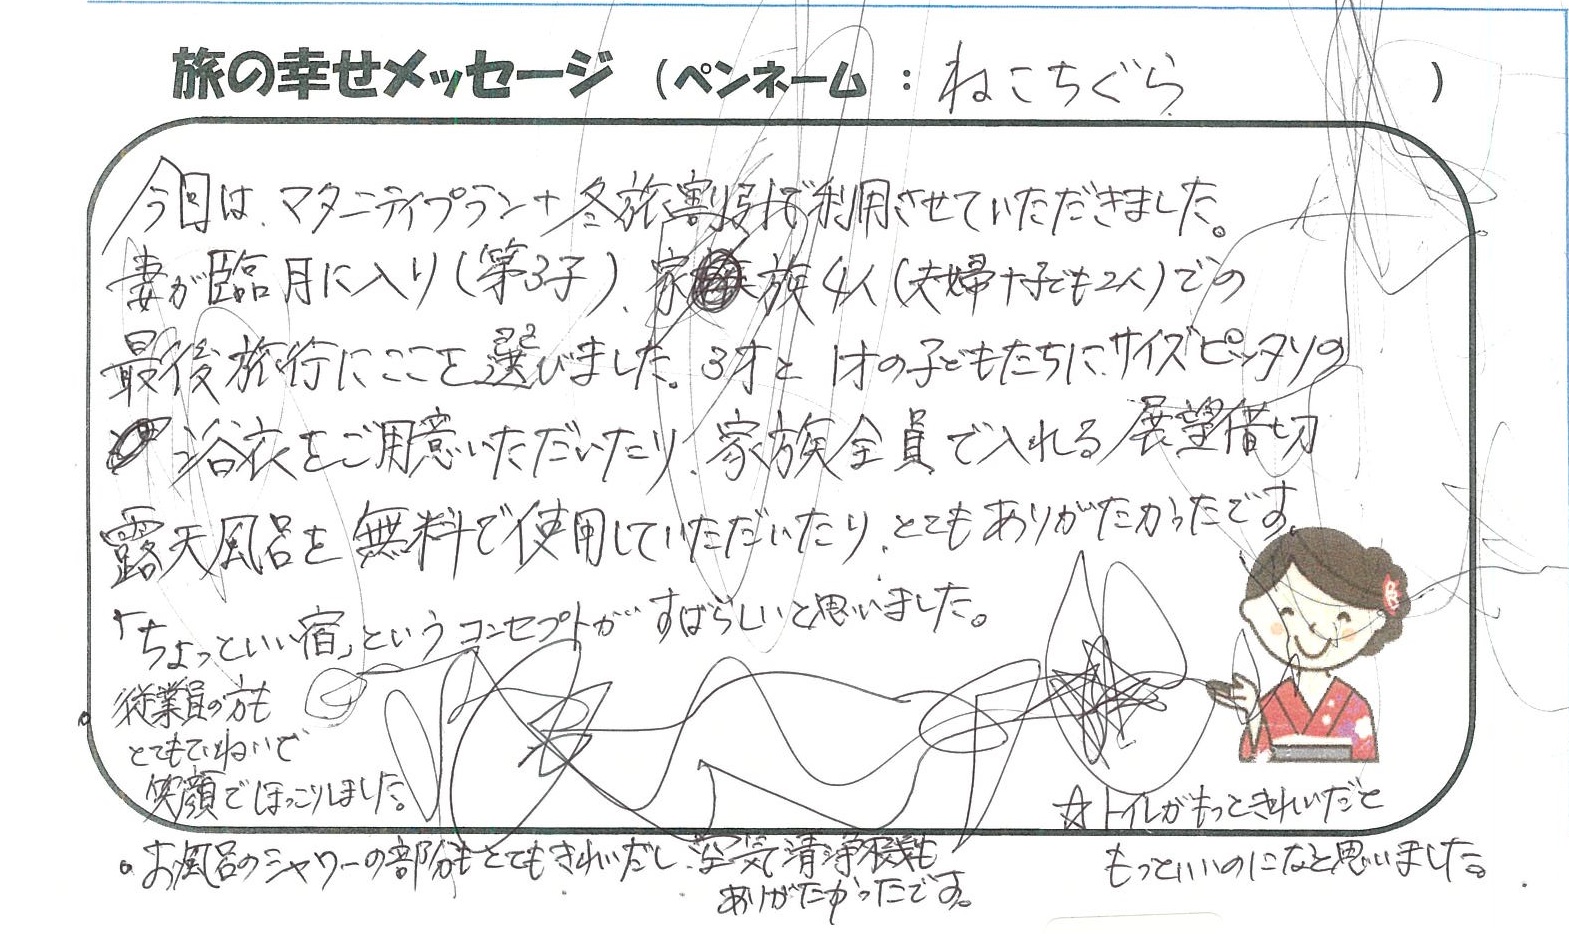 旅の幸せメッセージ (ペンネーム : ねこちぐら )
今日は、マタニティプラン+冬旅割引で利用させていただきました。
妻が臨月に入り(第3子)、家族4人(夫婦+子ども2人)での
最後旅行にここを選びました。3才と1才の子どもたちに、サイズピッタリの
浴衣をご用意いただいたり、家族全員で入れる展望貸切
露天風呂を無料で使用していただいたり、とてもありがたかったです。
「ちょっといい宿」というコンセプトがすばらしいと思いました。
従業員の方も
とてもていねいで
笑顔でほっこりしました。
。お風呂のシャワーの部分もとてもきれいだし、空気清浄機も
ありがたかったです。
☆トイレがもっときれいだと
もっといいのになと思いました。